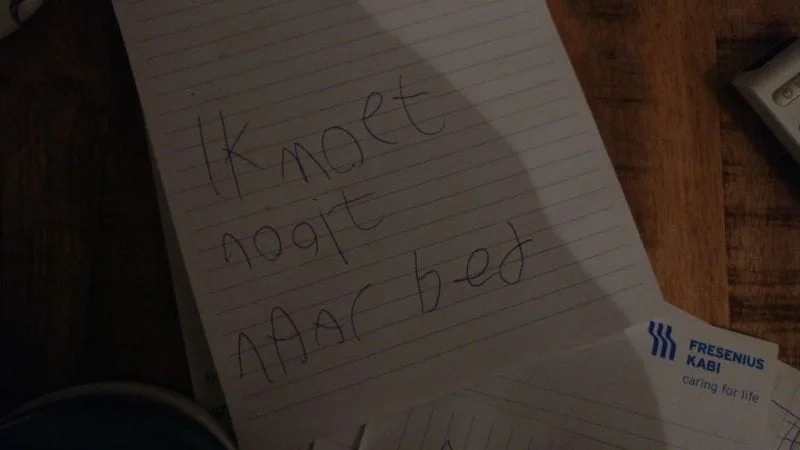 Ik moet
nooit
nAAr bed
FRESENIUS
KABI
caring for life